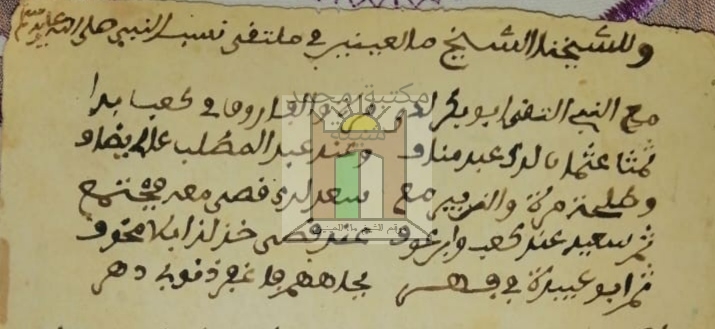 وللشيخنا الشيخ ماالعينين في ملتقى نسب النبي صلى الله عليه وسلم
مع النبي التقى ابو بكر لدى والفاروق في كعب بدا
ثمتا عثمان لدى عبد مناف وعند عبد المطلب علي يضاف
وطلحة مرة والزبير مع سعد لدى قصي معه مجتمع
ثم سعيد عند كعب وابن عوف عند قصي خذ لذا بلا
ثم ابو عبيدة في فهر بجاههم ذنوبي دهر
مكتبة محمد